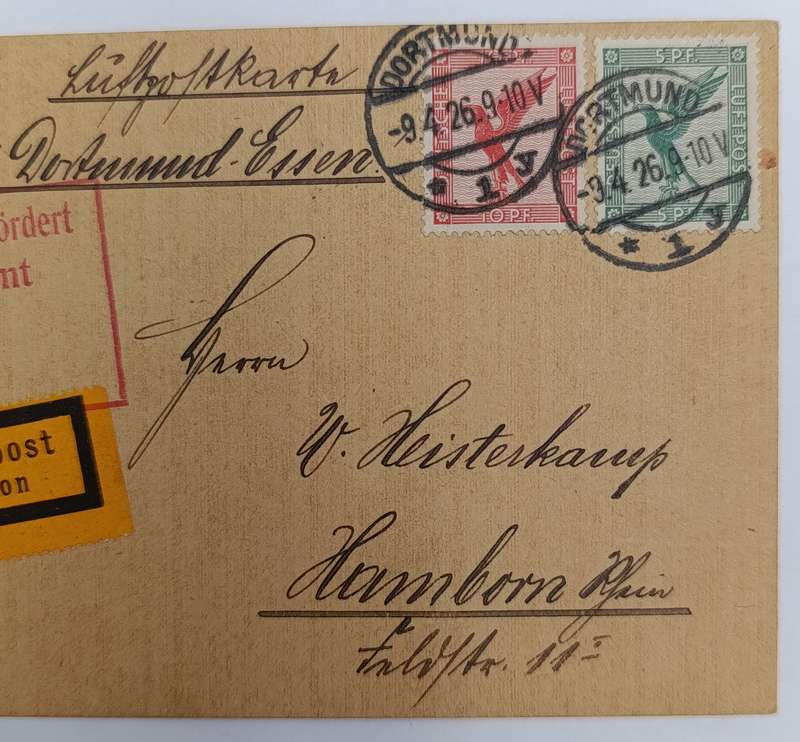 Luftpostkarte
Dortmund-Essen.
DORTMUND
-9.4.26.9-10V
* 1 y
10 PF.
DORTMUND
-9.4.26.9-10V
* 1 y
5 PF.
LUFTPOST
5 PF.
ördert
mt
Herrn
W. Heisterkamp
Hamborn Rhein
Feldstr. 11 I
post
on